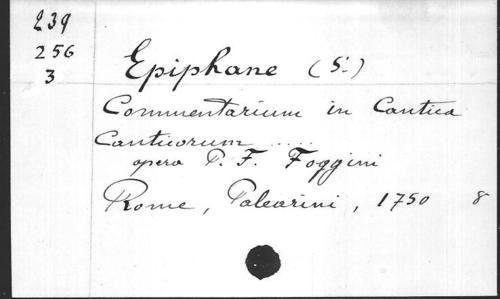 239
256
3
Epiphane (S.)
Commentarium in Cantica
Canticorum .....
opera P. F. Foggini
Rome, Palearini, 1750 8